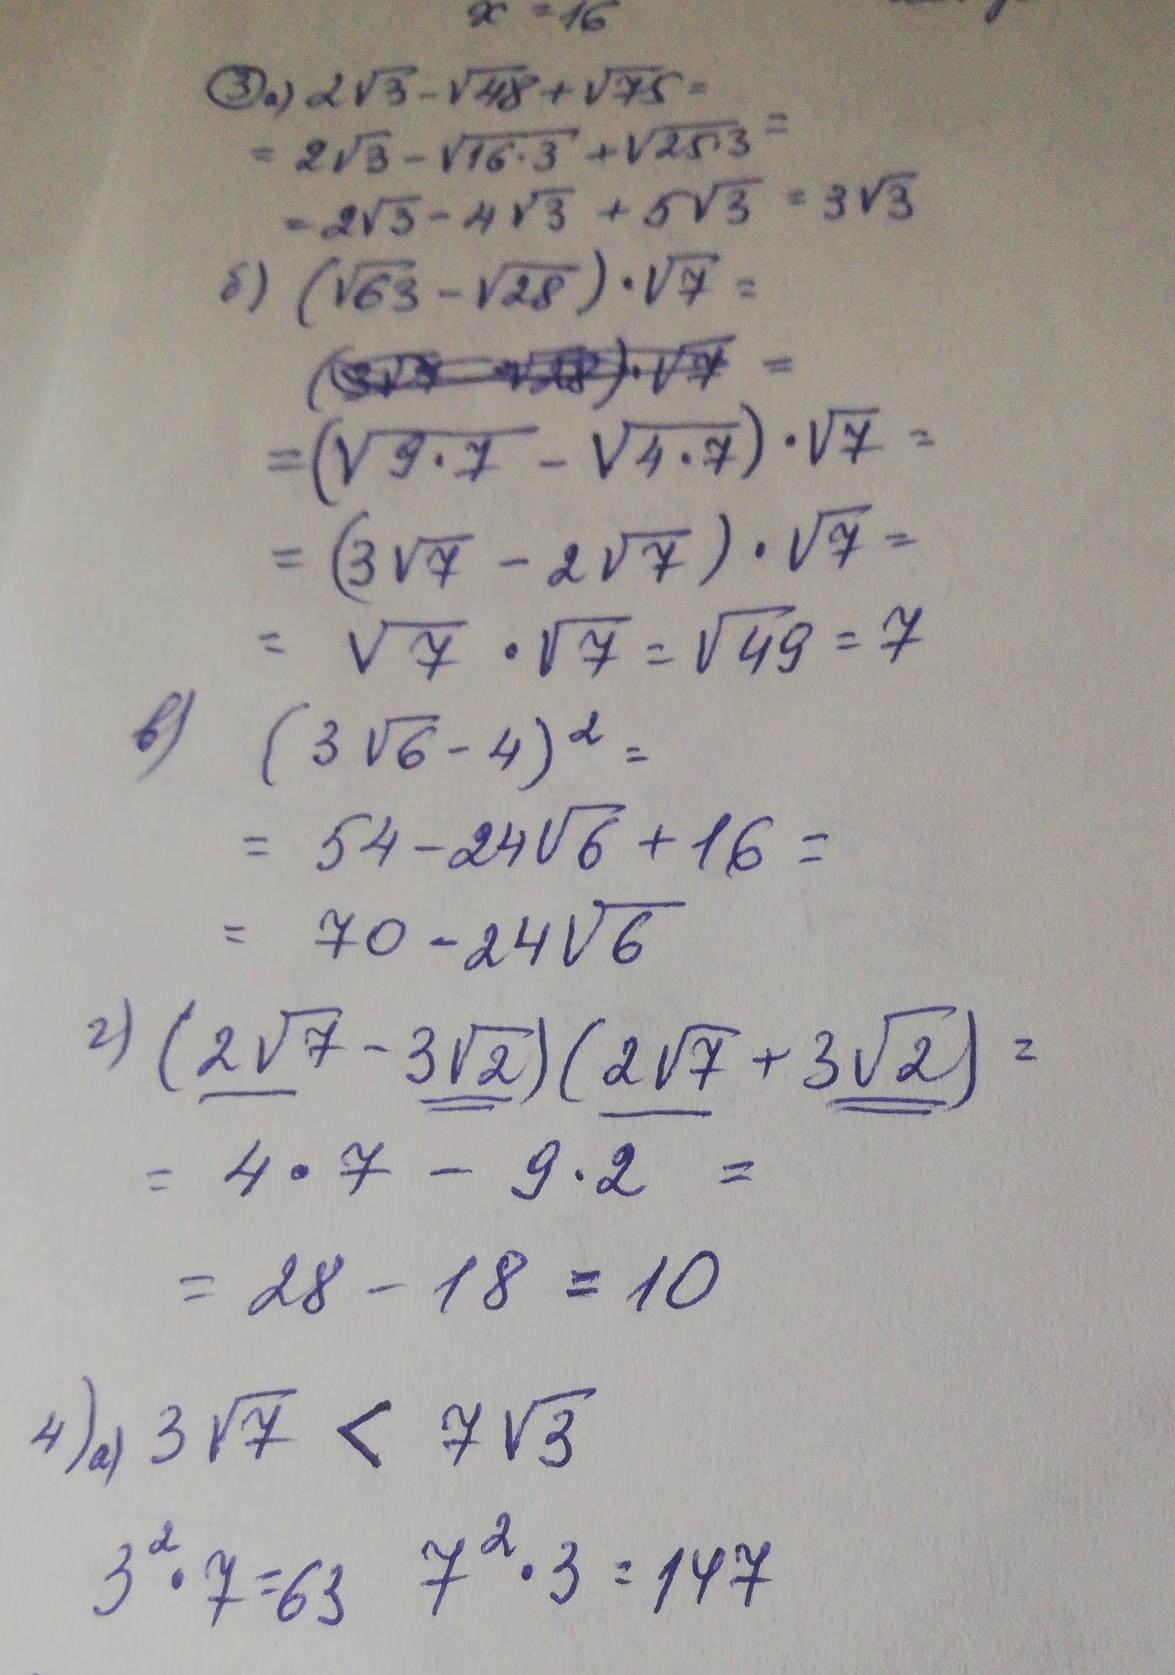 x = 16
③ а) 2√3 - √48 + √75 =
= 2√3 - √16·3 + √25·3 =
= 2√3 - 4√3 + 5√3 = 3√3
б) (√63 - √28) · √7 =
=
= (√9·7 - √4·7) · √7 =
= (3√7 - 2√7) · √7 =
= √7 · √7 = √49 = 7
в) (3√6 - 4)² =
= 54 - 24√6 + 16 =
= 70 - 24√6
г) (2√7 - 3√2)(2√7 + 3√2) =
= 4 · 7 - 9 · 2 =
= 28 - 18 = 10
4) а) 3√7 < 7√3
3² · 7 = 63 7² · 3 = 147